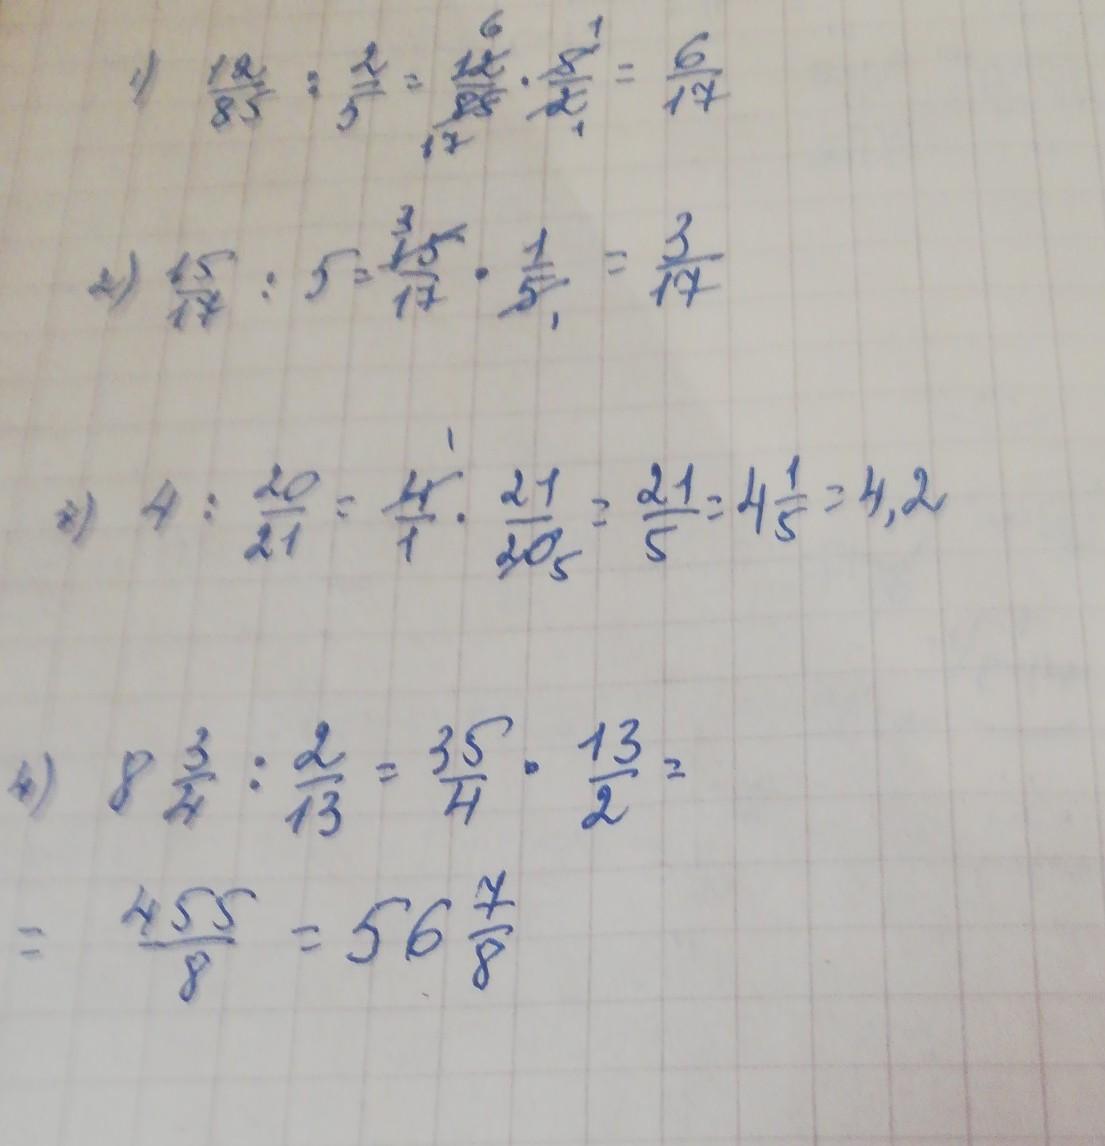 1) 12/85 : 2/5 = 12/85 · 5/2 = 6/17
2) 15/17 : 5 = 15/17 · 1/5 = 3/17
3) 4 : 20/21 = 4/1 · 21/20 = 21/5 = 4 1/5 = 4,2
4) 8 3/4 : 2/13 = 35/4 · 13/2 =
= 455/8 = 56 7/8